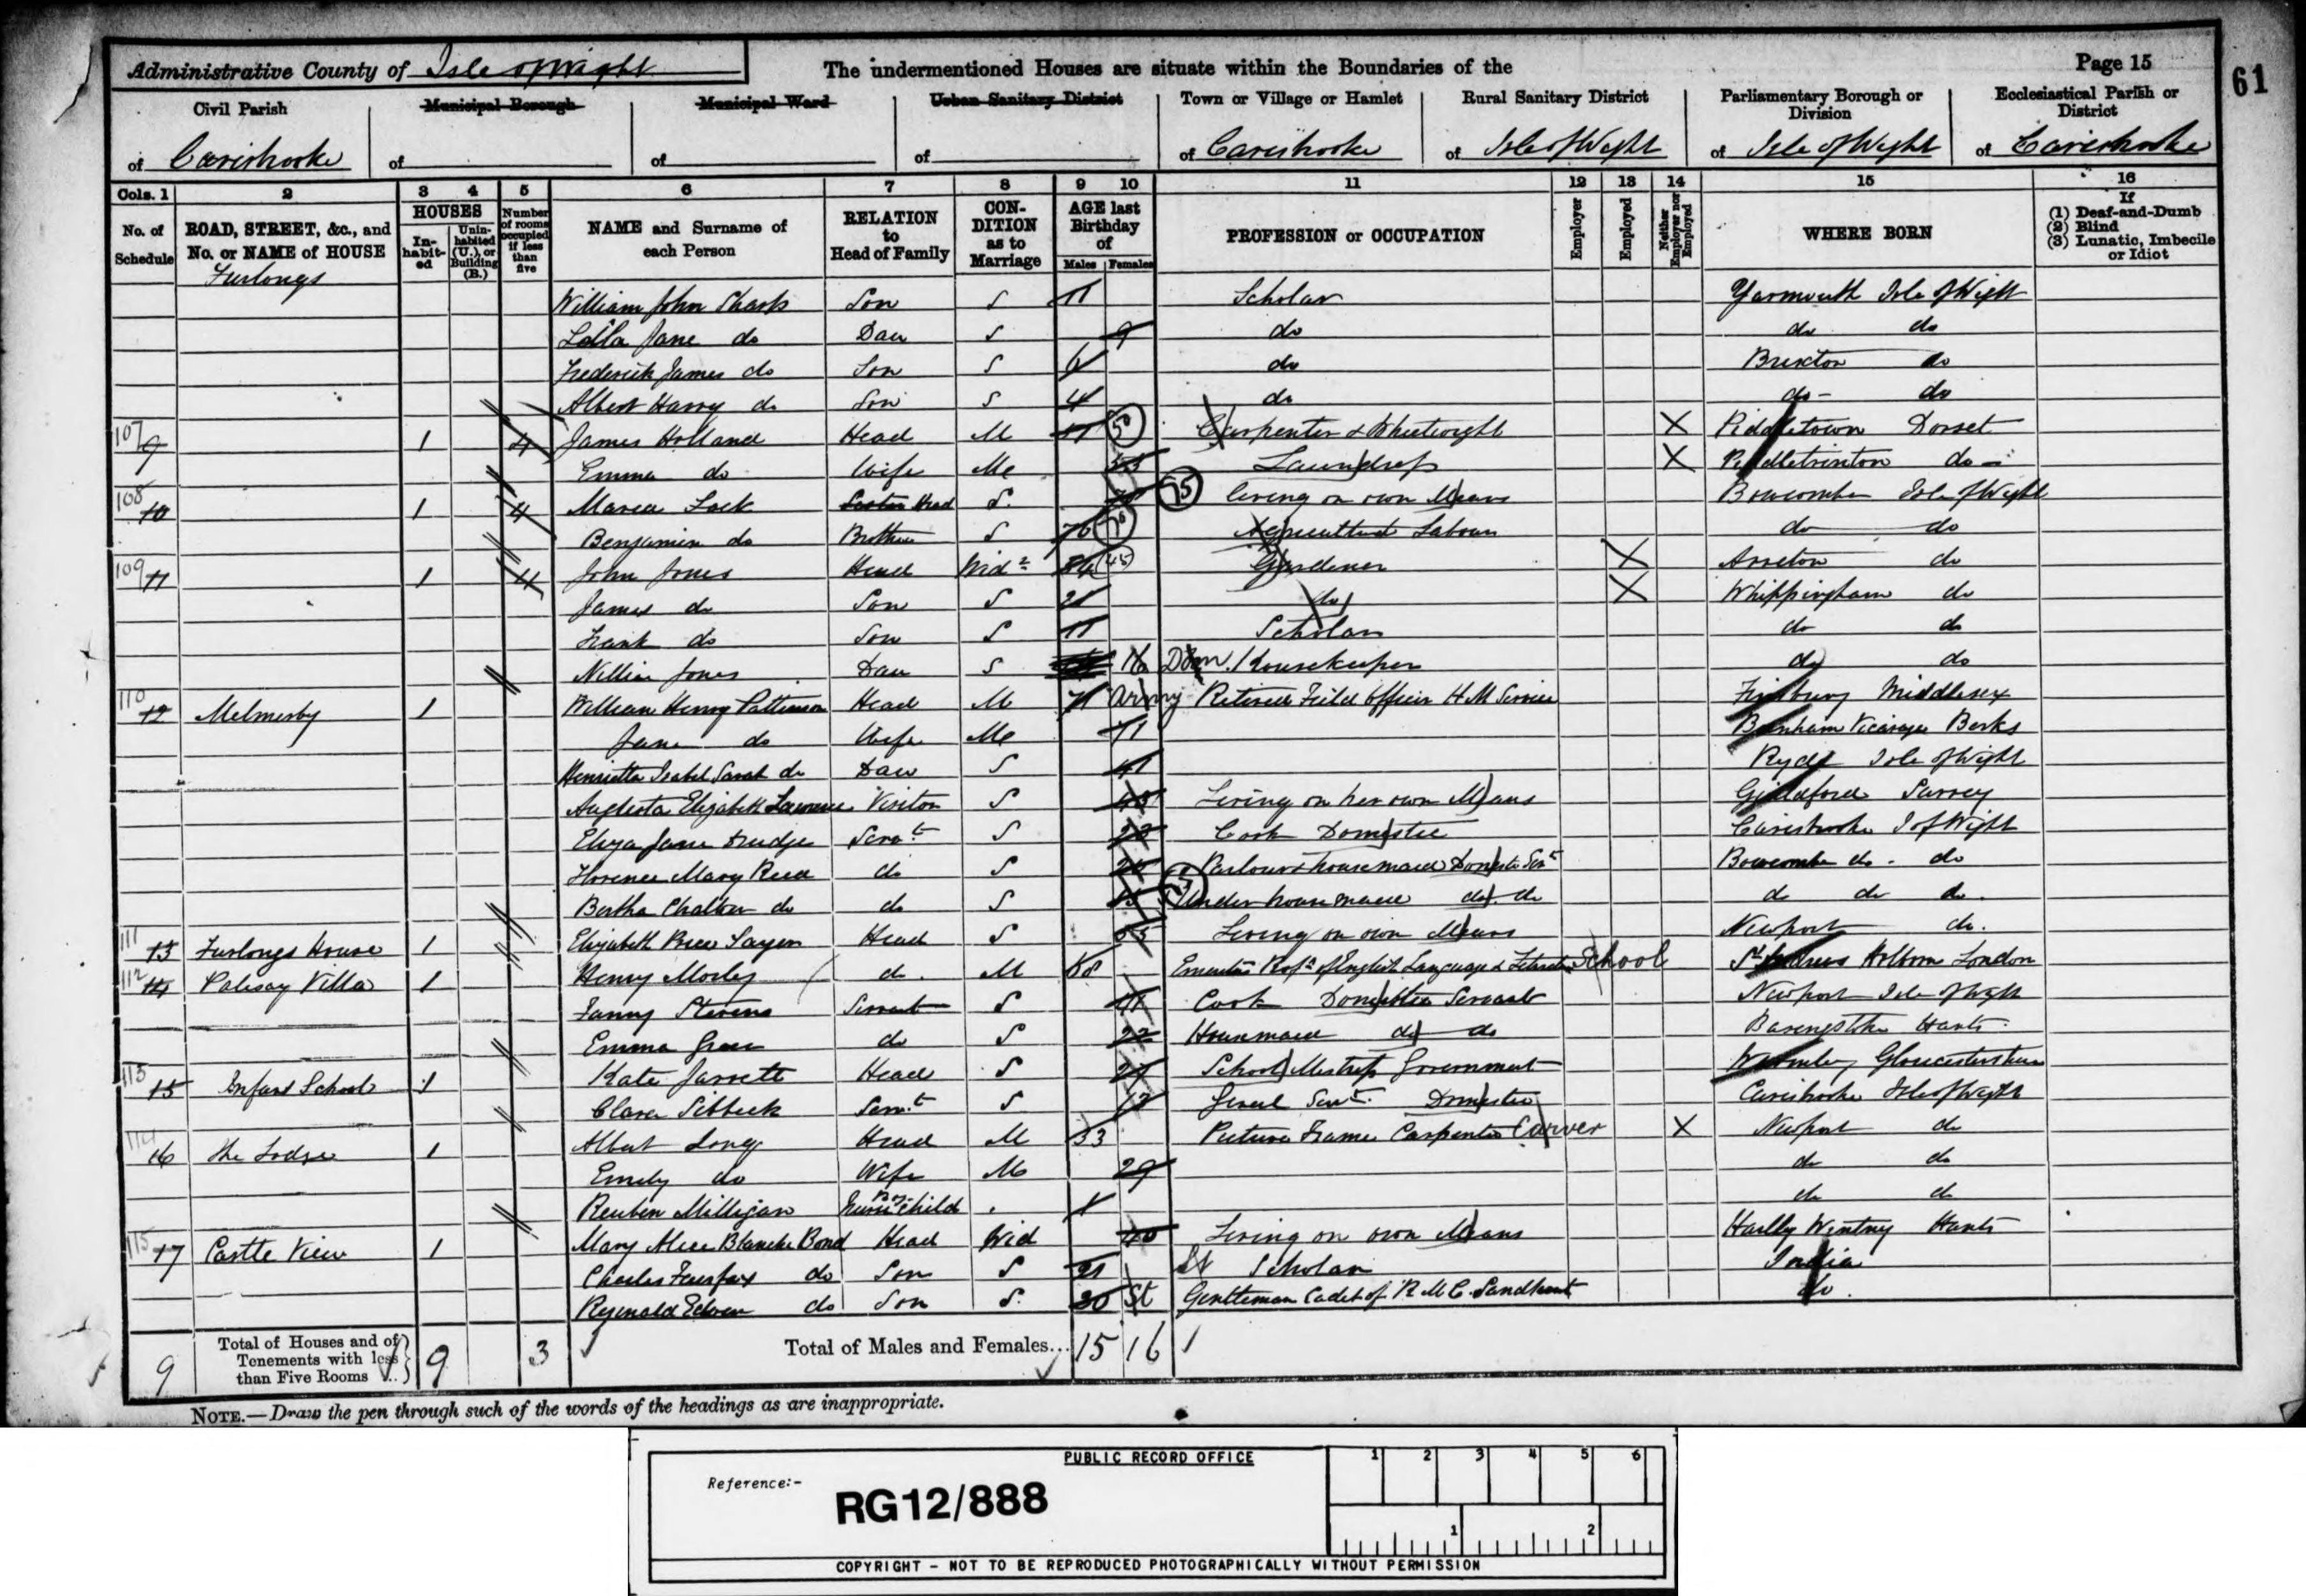 Administrative County of Isle of Wight
The undermentioned Houses are situate within the Boundaries of the
Page 15
61
Civil Parish of Carisbrooke
Municipal Borough of
Municipal Ward of
Urban Sanitary District of
Town or Village or Hamlet of Carisbrooke
Rural Sanitary District of Isle of Wight
Parliamentary Borough or Division of Isle of Wight
Ecclesiastical Parish or District of Carisbrooke
Cols. 1 2 3 4 5 6 7 8 9 10 11 12 13 14 15 16
No. of Schedule
ROAD, STREET, &c., and No. or NAME of HOUSE
HOUSES
Inhabited
Uninhabited (U.), or Building (B.)
Number of rooms occupied if less than five
NAME and Surname of each Person
RELATION to Head of Family
CONDITION as to Marriage
AGE last Birthday of
Males Females
PROFESSION or OCCUPATION
Employer
Employed
Neither Employer nor Employed
WHERE BORN
If (1) Deaf-and-Dumb (2) Blind (3) Lunatic, Imbecile or Idiot
Furlongs
William John Sharp Son S 11 Scholar Yarmouth Isle of Wight
Jane do Dau S 9 do do do
Frederick James do Son S 6 do Brixton do
Albert Harry do Son S 4 do do do
107 9 1 4 James Holland Head M 50 Carpenter & Wheelwright X Piddletown Dorset
Emma do Wife M Laundress X do
108 10 1 4 Maria Lock Sister Head S 75 living on own Means Bowcombe Isle of Wight
Benjamin do Brother S 70 70 Agricultural Labour do do
109 11 1 4 John Jones Head Widr 54 45 Gardener X Arreton do
James do Son S 21 do X Whippingham do
Frank do Son S 11 Scholar do do
Nellie Jones Dau S 16 Dom. Housekeeper do do
110 12 Melmerby 1 William Henry Pattinson Head M 71 Army Retired Field Officer H M Service Finsbury Middlesex
Jane do Wife M 71 Vicarage Berks
Henrietta Isabel Sarah do Dau S 41 Ryde Isle of Wight
Augusta Elizabeth Lawrence Visitor S 43 Living on her own Means Guildford Surrey
Eliza Jane Drudge Servt S 23 Cook Domestic Carisbrooke I of Wight
Florence Mary Read do S 20 Parlour & housemaid Domestic Sert Bowcombe do do
Bertha do do S 15 Under housemaid do do do do do
111 13 Furlongs House 1 Elizabeth Sayer Head S 55 Living on own Means Newport do
112 14 Palisay Villa 1 Henry Morley do M 68 Emeritus Profr of English Language & Literature School St Andrews Holborn London
Fanny Stevens Servant S 41 Cook Domestic Servant Newport Isle of Wight
Emma do S 22 Housemaid do do Basingstoke Hants
113 15 Infant School 1 Kate Jarrett Head S School Mistress Government Gloucestershire
Clara Sibbick Servt S 13 Genl Servt Domestic Carisbrooke Isle of Wight
114 16 The Lodge 1 Albert Long Head M 33 Picture Frame Carpenter Carver X Newport do
Emily do Wife M 29 do do
Reuben Milligan Nurse child 1 do do
115 17 Castle View 1 Mary Alice Blanche Bond Head Wid 40 Living on own Means Hartly Wintney Hants
Charles Fairfax do Son S 21 St Scholar India
Reginald Edwin do Son S 20 St Gentleman Cadet of R M C Sandhurst do
9 Total of Houses and of Tenements with less than Five Rooms 9 3
Total of Males and Females... 15 16
NOTE.—Draw the pen through such of the words of the headings as are inappropriate.
PUBLIC RECORD OFFICE
1 2 3 4 5 6
Reference:-
RG12/888
1 2
COPYRIGHT - NOT TO BE REPRODUCED PHOTOGRAPHICALLY WITHOUT PERMISSION